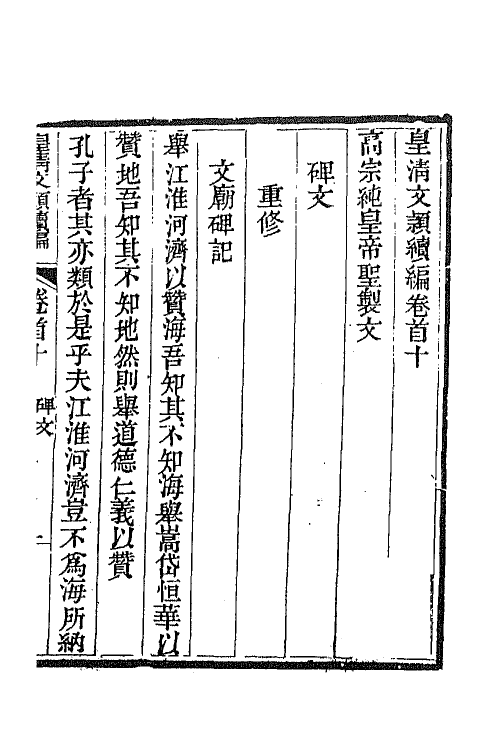 皇清文潁續編卷首十
高宗純皇帝聖製文
碑文
重修
文廟碑記
舉江淮河濟以贊海吾知其不知海舉嵩岱恒華以
贊地吾知其不知地然則舉道德仁義以贊
孔子者其亦類於是乎夫江淮河濟豈不為海所納
皇清文潁續編
卷首十
碑文
一